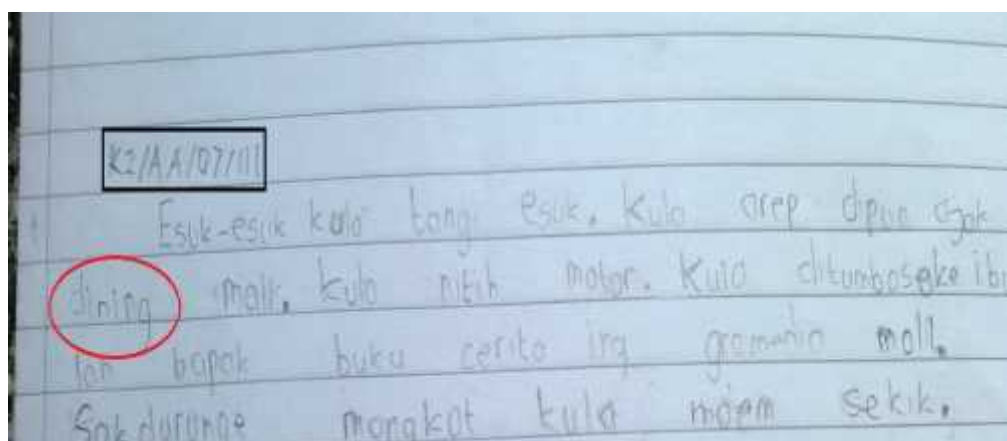 K2/AA/07/111
Esuk-esuk kulo tangi esuk. Kulo arep dipun ajak
dining mall. kulo nitih motor. Kulo ditumbaseke ibu
lan bapak buku cerito ing gramania mall.
Sakdurunge mangkat kulo maem sekik.